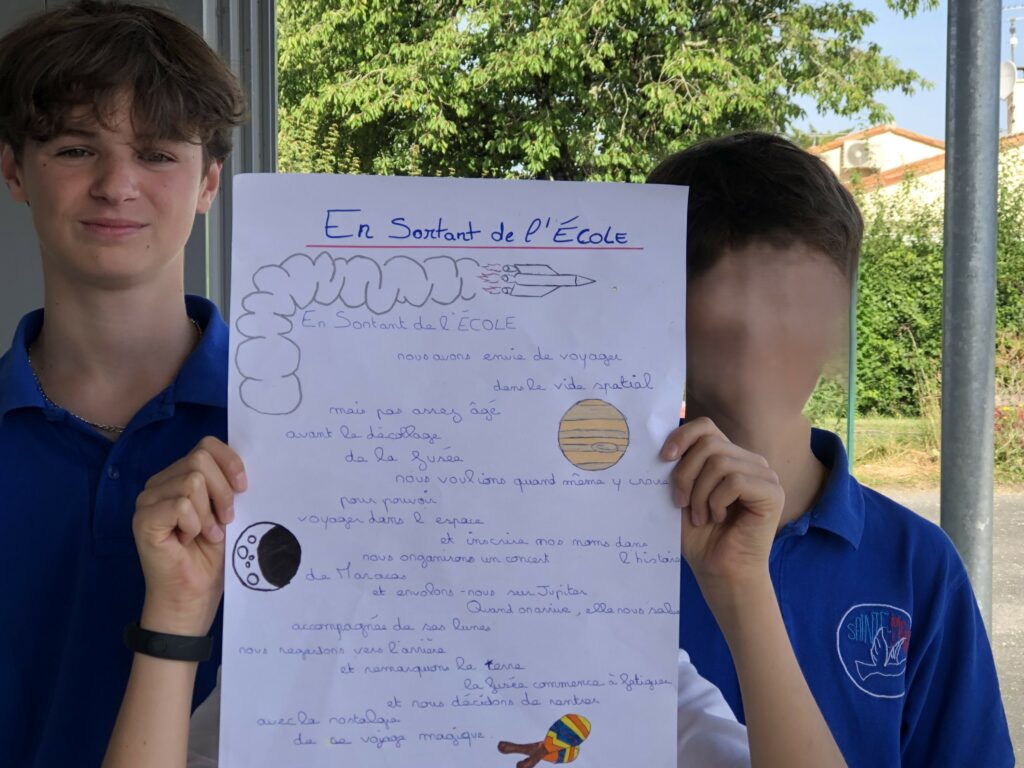 En Sortant de l'École
En Sortant de l'ÉCOLE
nous avons envie de voyager
dans le vide spatial
mais pas assez âgé
avant le décollage
de la fusée
nous voulions quand même y croire
pour pouvoir
voyager dans l espace
et inscrire nos noms dans
l histoire
nous organisons un concert
de Maracas
et envolons-nous sur Jupiter
Quand on arrive, elle nous salue
accompagnée de ses lunes
nous regardons vers l'arrière
et remarquons la terre
la fusée commence à fatiguer
et nous décidons de rentrer
avec la nostalgie
de ce voyage magique.
SAINTE